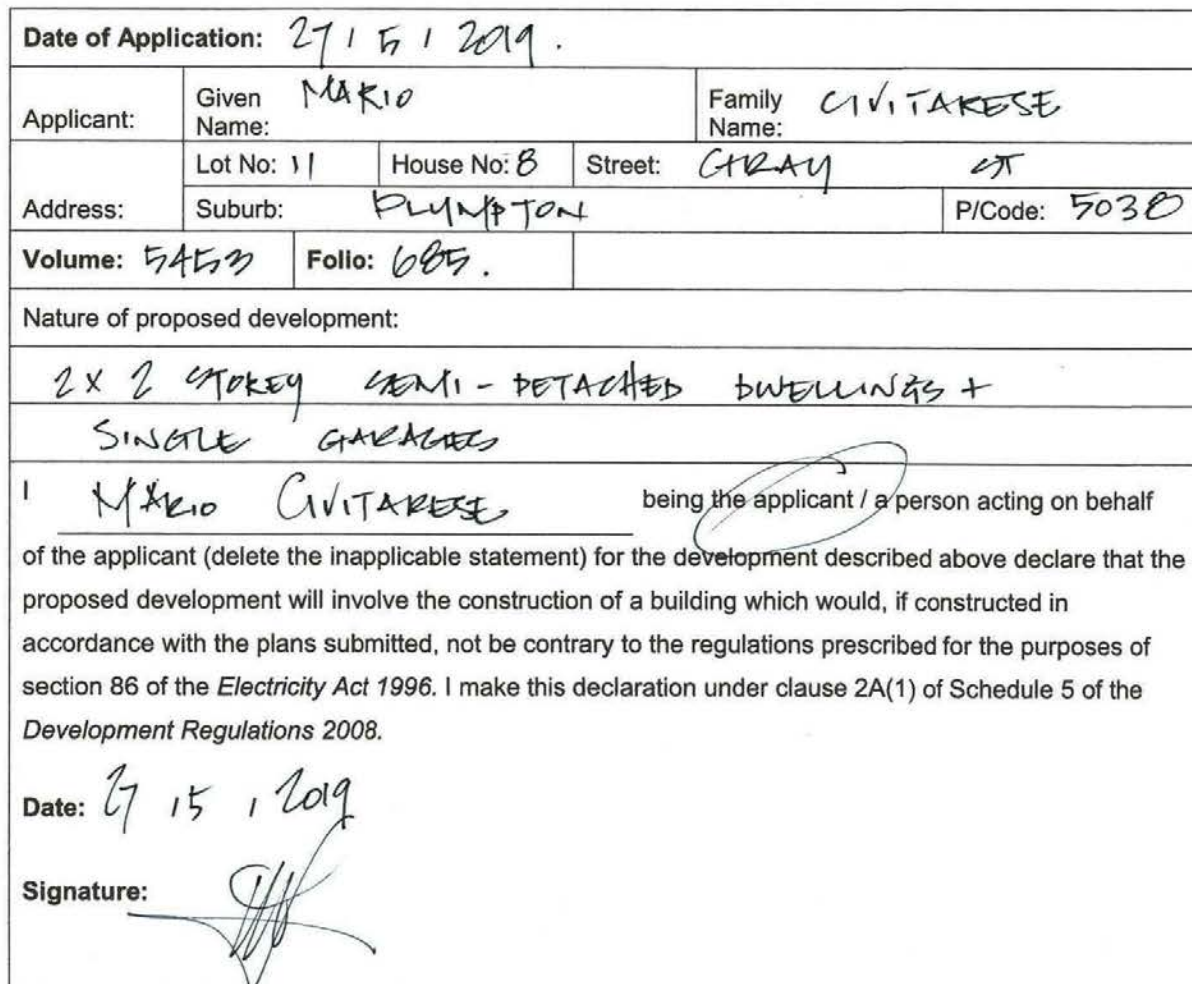 Date of Application: 27 / 5 / 2019.
Applicant: Given Name: MARIO Family Name: CIVITARESE
Lot No: 11 House No: 8 Street: GRAY ST
Address: Suburb: PLYMPTON P/Code: 5038
Volume: 5453 Folio: 685.
Nature of proposed development:
2 x 2 STOREY SEMI-DETACHED DWELLINGS +
SINGLE GARAGES
I MARIO CIVITARESE being the applicant / a person acting on behalf
of the applicant (delete the inapplicable statement) for the development described above declare that the
proposed development will involve the construction of a building which would, if constructed in
accordance with the plans submitted, not be contrary to the regulations prescribed for the purposes of
section 86 of the Electricity Act 1996. I make this declaration under clause 2A(1) of Schedule 5 of the
Development Regulations 2008.
Date: 27 / 5 / 2019
Signature: